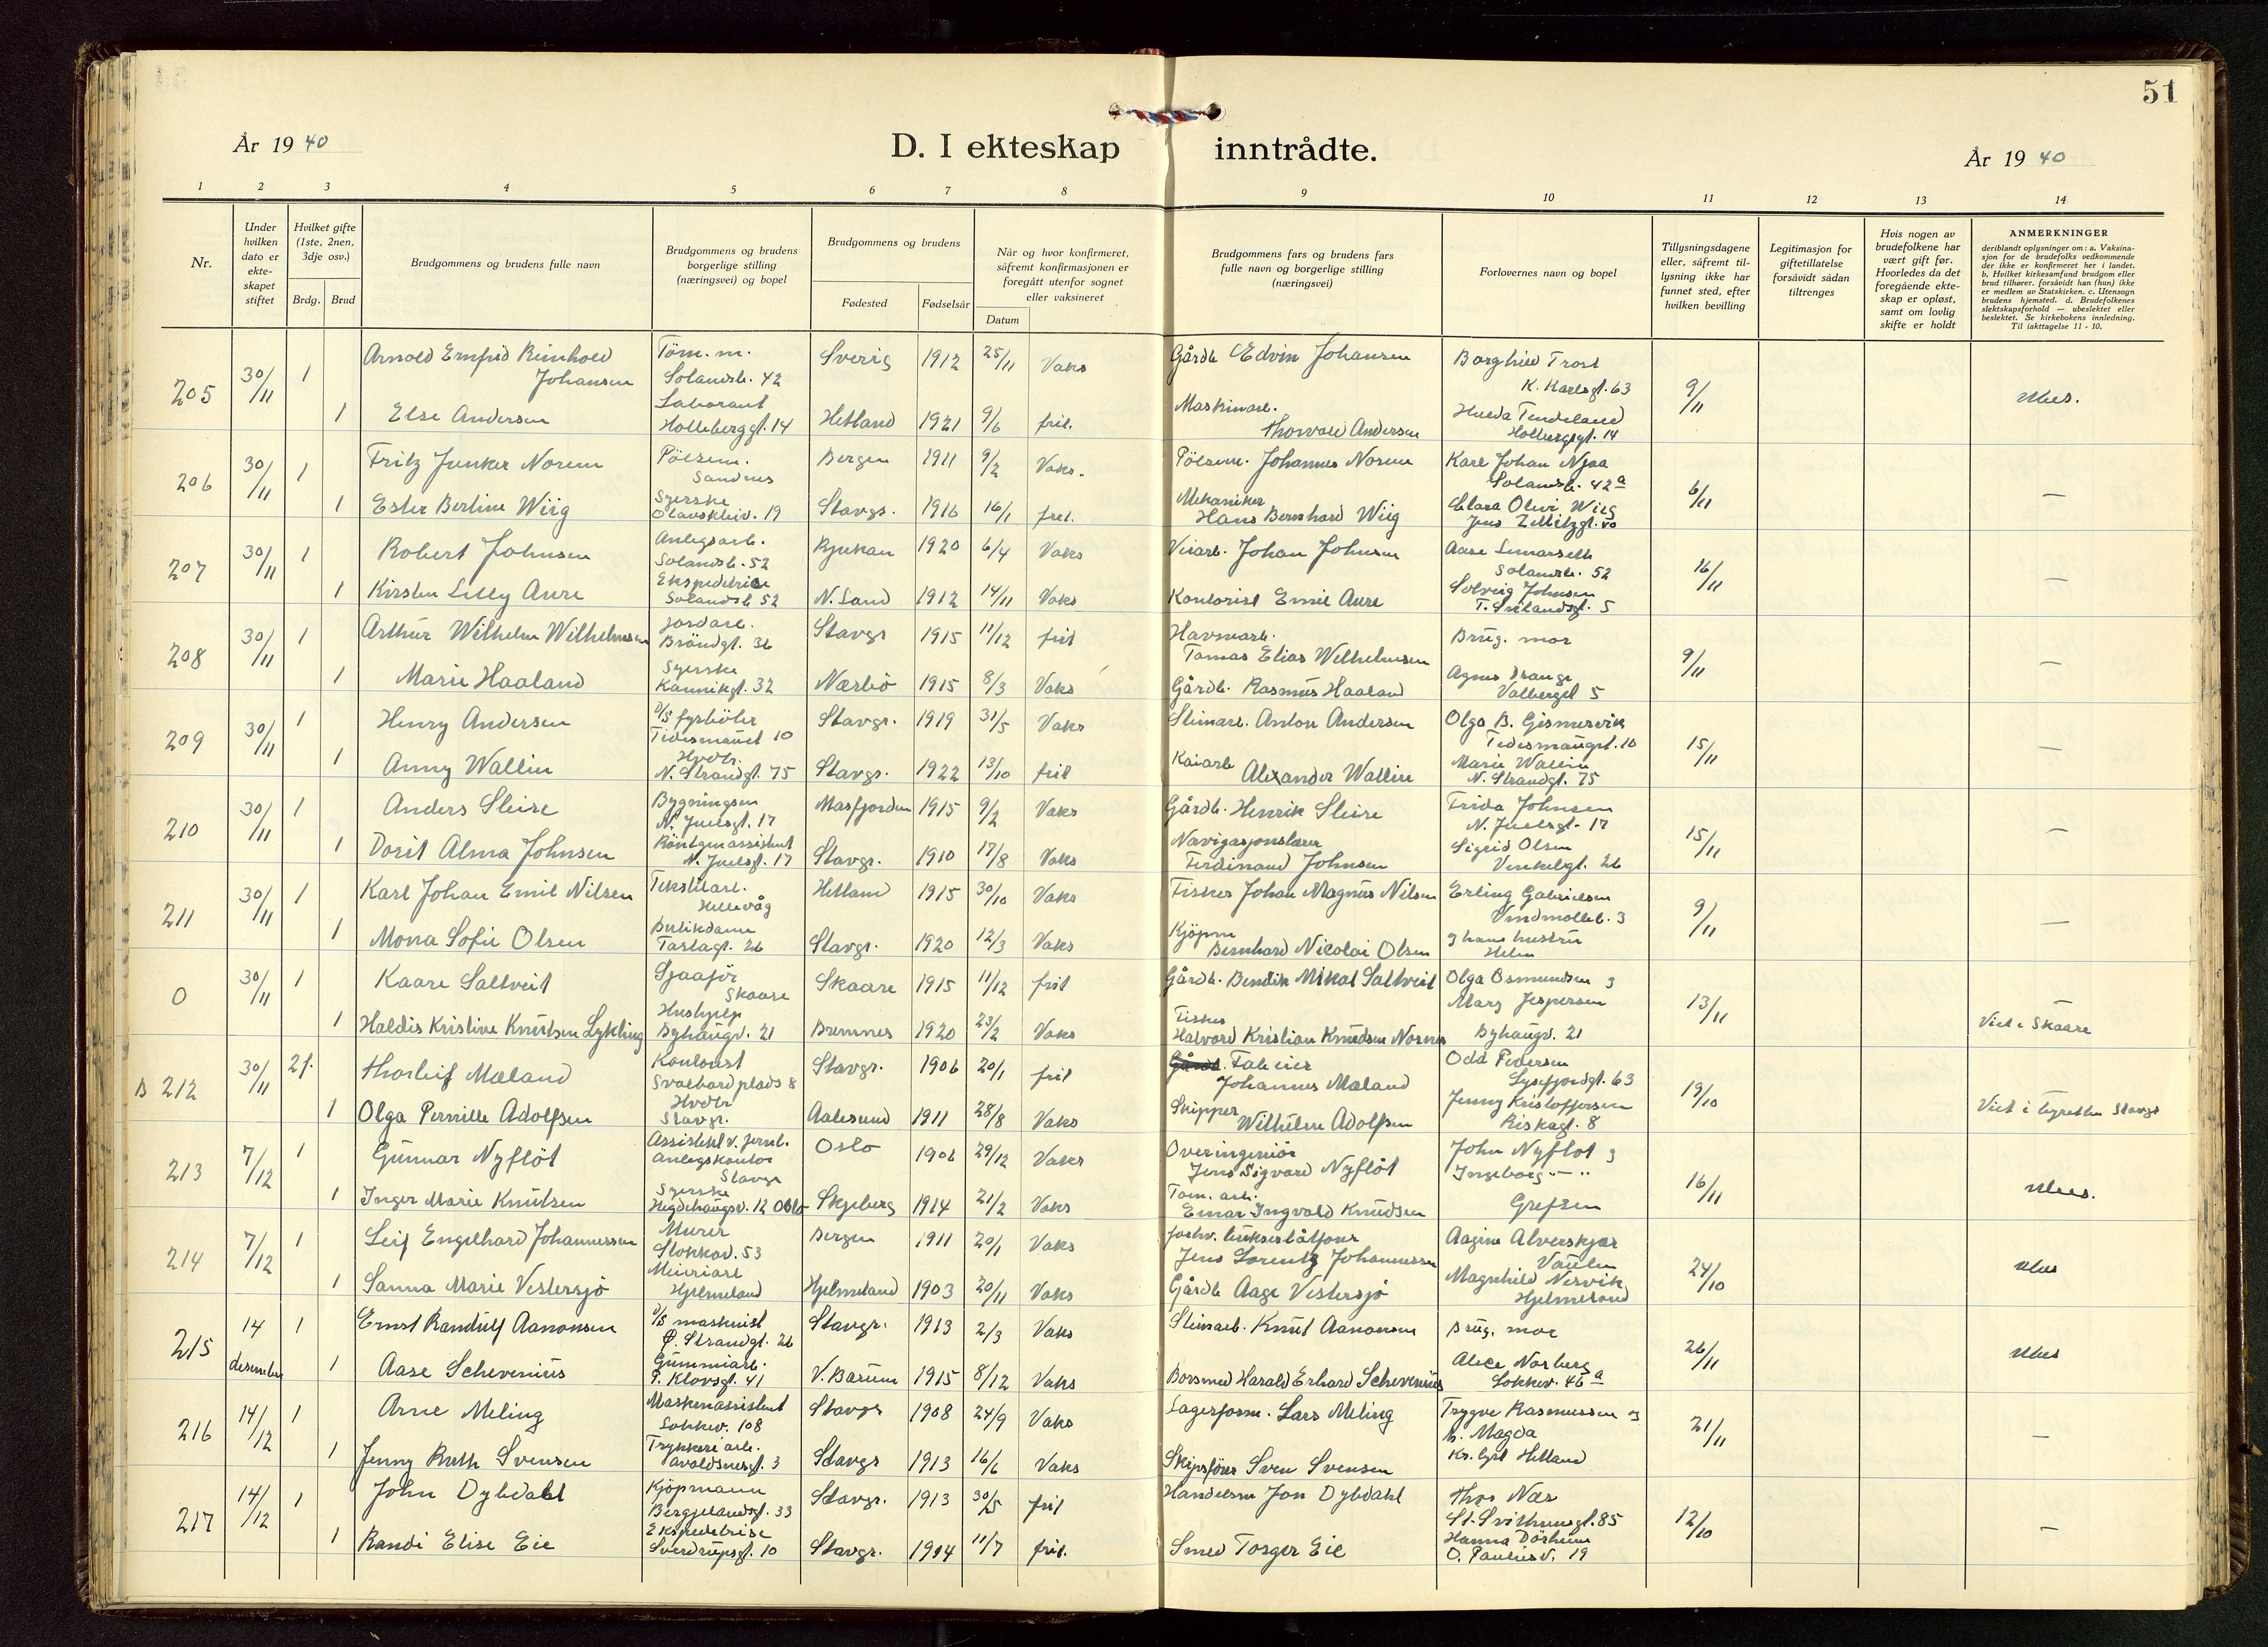 51
År 19 40
D. I ekteskap inntrådte.
År 19 40
1 2 3 4 5 6 7 8 9 10 11 12 13 14
Nr.
Under hvilken dato er ekte-skapet stiftet
Hvilket gifte (1ste, 2nen, 3dje osv.)
Brdg. Brud
Brudgommens og brudens fulle navn
Brudgommens og brudens borgerlige stilling (næringsvei) og bopel
Brudgommens og brudens
Fødested Fødselsår
Når og hvor konfirmeret, såfremt konfirmasjonen er foregått utenfor sognet eller vaksineret
Datum
Brudgommens fars og brudens fars fulle navn og borgerlige stilling (næringsvei)
Forlovernes navn og bopel
Tillysningsdagene eller, såfremt til-lysning ikke har funnet sted, efter hvilken bevilling
Legitimasjon for giftetillatelse forsåvidt sådan tiltrenges
Hvis nogen av brudefolkene har vært gift før. Hvorledes da det foregående ekte-skap er opløst, samt om lovlig skifte er holdt
ANMERKNINGER
deriblandt oplysninger om: a. Vaksina-sjon for de brudefolks vedkommende der ikke er konfirmeret her i landet. b. Hvilket kirkesamfund brudgom eller brud tilhører, forsåvidt han (hun) ikke er medlem av Statskirken. c. Utensogn brudens hjemsted. d. Brudefolkenes slektskapsforhold — ubeslektet eller beslektet. Se kirkebokens innledning. Til iakttagelse 11 - 10.
205 30/11 1 Arnold Ernfrid Reinhold Johansen Töm. m. Solandsb. 42 Sverig 1912 25/11 Vaks Gårdb Edvin Johansen Borghild Trost K. Karlsgt. 63 9/11 Ubes.
1 Else Andersen Laborant Holberggt. 14 Hetland 1921 9/6 fril. Maskinarb. Thorvald Andersen Hulda Tendeland Holbergsgt. 14
206 30/11 1 Fritz Junker Norem Pölsem. Sandnes Bergen 1911 9/2 Vaks. Pölsem. Johannes Norem Karl Johan Njaa Solandsb. 42a 6/11 —
1 Ester Berline Wiig Syerske Olavskleiv. 19 Stavgr. 1916 16/1 fril. Mekaniker Hans Bernhard Wiig Clara Olivi Wiig Jens Zetlitzgt.
207 30/11 1 Robert Johnsen Anlegsarb. Solandsb. 52 Rjukan 1920 6/4 Vaks Visarb. Johan Johnsen Aase Solandsb. 52 16/11 —
1 Kirsten Lilly Aure Ekspeditrice Solandsb 52 N. Land 1912 14/11 Vaks Kontorist Emil Aure Solveig Johnsen 5
208 30/11 1 Arthur Wilhelm Wilhelmsen Jordarb. Bröndgt. 36 Stavgr 1915 11/12 fril Havnearb. Tomas Elias Wilhelmsen Brug. mor 9/11 —
1 Marie Haaland Syerske Kannikgt. 32 Nærbö 1915 8/3 Vaks Gårdb. Rasmus Haaland Agnes Drange Valberget 5
209 30/11 1 Henry Andersen D/S fyrböter Tidesmauet 10 Stavgr. 1919 31/5 Vaks Steinarb. Anton Andersen Olga B. Gismervik Tidesmaugt. 10 15/11 —
1 Anny Wallin Hvdtr. N. Strandgt. 75 Stavgr. 1922 13/10 fril Kaiarb Alexander Wallin Marie Wallin N. Strandgt. 75
210 30/11 1 Anders Sleire Bygningsm N. Juelsgt. 17 Masfjorden 1915 9/2 Vaks Gårdb. Henrik Sleire Frida Johnsen N. Juelsgt. 17 15/11 —
1 Dorit Alma Johnsen Röntgenassistent N. Juelsgt. 17 Stavgr. 1910 17/8 Vaks Navigasjonslærer Ferdinand Johnsen Sigrid Olsen Vinkelgt. 26
211 30/11 1 Karl Johan Emil Nilsen Tekstilarb. Hillevåg Hetland 1915 30/10 Vaks Fisker Johan Magnus Nilsen Erling Gabrielsen Vindmølleb. 3 9/11 —
1 Mona Sofie Olsen Butikdame Tastagt. 26 Stavgr. 1920 12/3 Vaks Kjöpm Bernhard Nicolai Olsen g hans hustru Helen
0 30/11 1 Kaare Saltveit Sjaaför Skaare Skaare 1915 11/12 fril Gårdb. Bendik Mikal Saltveit Olga Osmundsen g Mary Jespersen 13/11 Viet i Skaare
1 Haldis Kristine Knutsen Lykling Hushjelp Byhaugv. 21 Bremnes 1920 23/2 Vaks Fisker Halvord Kristian Knudsen Byhaugv. 21
B 212 30/11 2f. Thorleif Mæland Kontorist Svalbardplads 8 Stavgr. 1906 20/1 fril Fab eier Johannes Mæland Odd Pedersen Lysefjordgt. 63 19/10 Viet i Stavgr
1 Olga Pernille Adolfsen Hvdtr Stavgr. Aalesund 1911 28/8 Vaks Skipper Wilhelm Adolfsen Jenny Kristoffersen Riskagt. 8
213 7/12 1 Gunnar Nyflöt Assistent v. Jernb. Anlegskontor Stavgr Oslo 1906 29/12 Vaks Overingeniör Jens Sigvard Nyflöt John Nyflot g Ingeborg —"— 16/11 Ubes.
1 Inger Marie Knutsen Syerske Hegdehaugsv. 12 Oslo Skjeberg 1914 21/2 Vaks Tom. arb. Einar Ingvald Knudsen Grefsen
214 7/12 1 Leif Engelhard Johannessen Murer Stokkav. 53 Bergen 1911 20/1 Vaks Jens Lorentz Johannessen Aagina Alverskjær Vaulen 24/10 Ubes
1 Sanna Marie Vestersjö Meieriarb Hjelmeland Hjelmeland 1903 20/11 Vaks Gårdb Aage Vestersjö Magnhild Nesvik Hjelmeland
215 14 desember 1 Ernst Randulf Aanonsen D/S maskinist Ø. Strandgt. 26 Stavgr. 1913 2/3 Vaks Steinarb. Knut Aanonsen Brug. mor 26/11 Ubes
1 Aase Schevenius Gummiarb. P. Klovsgt. 41 V. Bærum 1915 8/12 Vaks Harald Erhard Schevenius Alice Norberg Lokkev. 46a
216 14/12 1 Arne Meling Maskinassistent Lökkev. 108 Stavgr 1908 24/9 Vaks Lagerform. Lars Meling Trygve Rasmussen og h. Magda 21/11 —
1 Jenny Ruth Svensen Trykkeri arb. Avaldsnesgt. 3 Stavgr 1913 16/6 Vaks Skipsförer Sven Svensen Hetland
217 14/12 1 John Dybdahl Kjöpmann Bergjelandsgt. 33 Stavgr. 1913 30/5 fril Handelsm Jon Dybdahl Thor Nær St. Svithunsgt. 85 12/10 —
1 Randi Elise Eie Ekspeditrise Sverdrupsgt. 10 Stavgr. 1914 11/7 fril. Smed Torger Eie Hanna O. Paulusv. 19